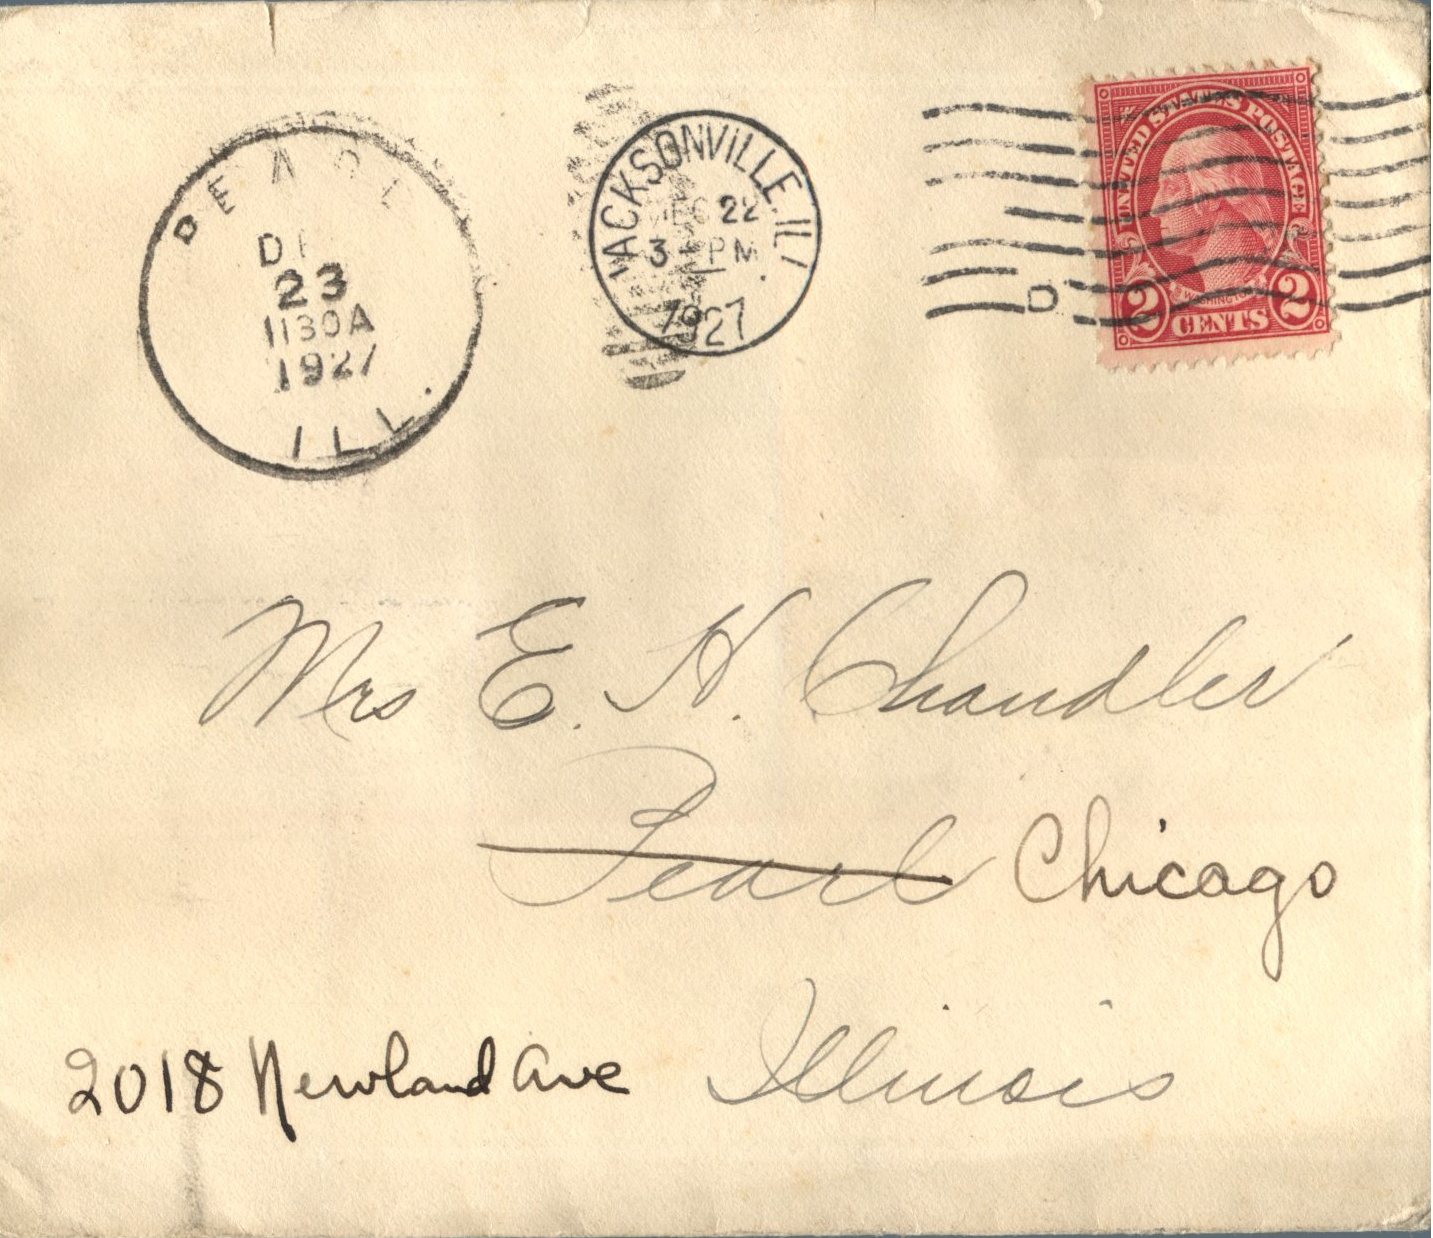 PEARL
DE
23
1130A
1927
ILL.
JACKSONVILLE, ILL
DEC 22
3 - PM
1927
D
UNITED STATES POSTAGE
WASHINGTON
2 CENTS 2
Mrs E. H. Chandler
Pearl Chicago
2018 Newland Ave Illinois